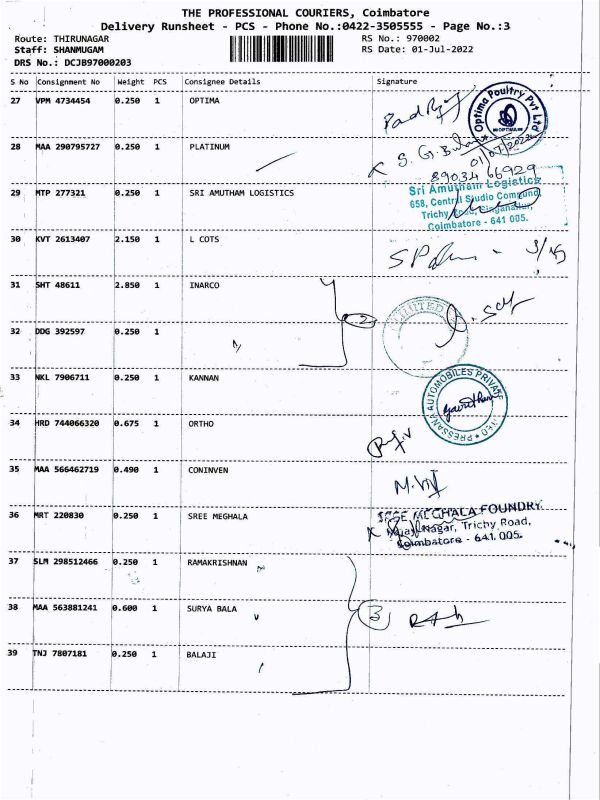 THE PROFESSIONAL COURIERS, Coimbatore
Delivery Runsheet - PCS - Phone No.:0422-3505555 - Page No.:3
Route: THIRUNAGAR RS No.: 970002
Staff: SHANMUGAM RS Date: 01-Jul-2022
DRS No.: DCJB97000203
S No Consignment No Weight PCS Consignee Details Signature
27 VPM 4734454 0.250 1 OPTIMA
Optima Poultry Pvt Ltd
OPTIMA
28 MAA 290795727 0.250 1 PLATINUM
01/07/2022
89034 66929
29 MTP 277321 0.250 1 SRI AMUTHAM LOGISTICS
Sri Amutham Logistics
658, Central Studio Compound
Trichy Road, Singanallur,
Coimbatore - 641 005.
30 KVT 2613407 2.150 1 L COTS
31 SHT 48611 2.850 1 INARCO
2
LIMITED
32 DDG 392597 0.250 1
33 NKL 7906711 0.250 1 KANNAN
PRESSANA AUTOMOBILES PRIVATE LIMITED
34 HRD 744066320 0.675 1 ORTHO
35 MAA 566462719 0.490 1 CONINVEN
36 MRT 220830 0.250 1 SREE MEGHALA
SREE MEGHALA FOUNDRY
Nagar, Trichy Road,
Coimbatore - 641 005.
37 SLM 298512466 0.250 1 RAMAKRISHNAN
38 MAA 563881241 0.600 1 SURYA BALA
3
39 TNJ 7807181 0.250 1 BALAJI